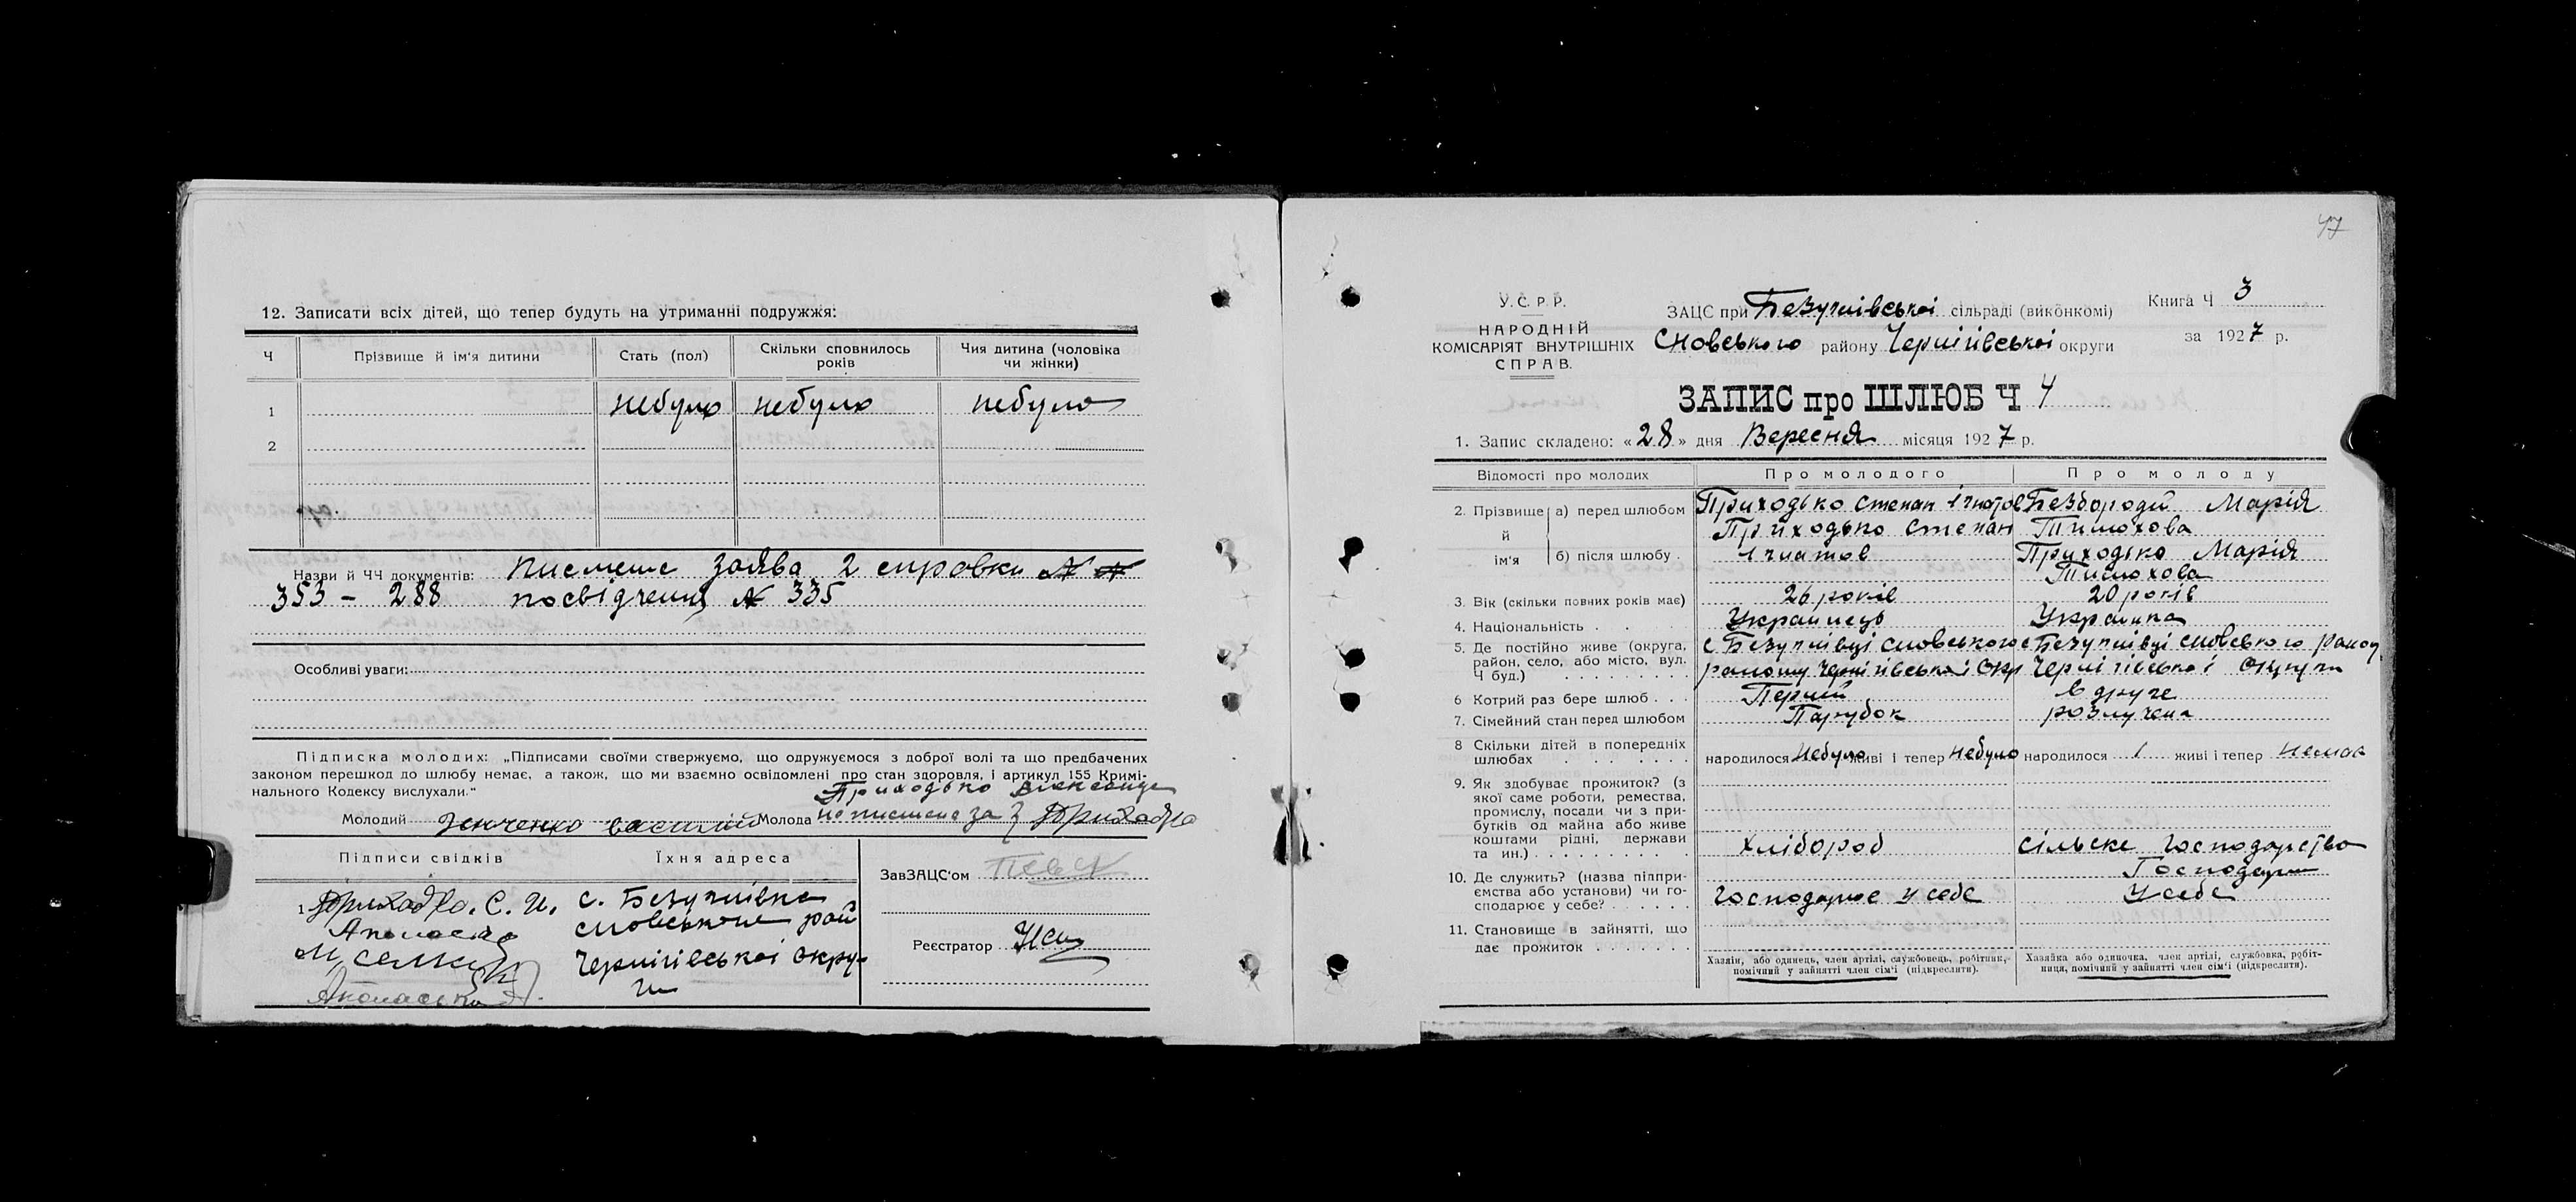 12. Записати всіх дітей, що тепер будуть на утриманні подружжя:
Ч Прізвище й ім'я дитини Стать (пол) Скільки сповнилось років Чия дитина (чоловіка чи жінки)
1 небуло небуло небуло
2
Назви й ЧЧ документів: писмене заява 2 справки № №
353 – 288 посвідчення № 335
Особливі уваги:
Підписка молодих: „Підписами своїми ствержуємо, що одружуємося з доброї волі та що предбачених
законом перешкод до шлюбу немає, а також, що ми взаємно освідомлені про стан здоровля, і артикул 155 Кримі-
нального Кодексу вислухали.“
Приходько
Молодий Зенченко василий Молода неписмена за
Підписи свідків Їхня адреса
ЗавЗАЦС'ом
1 С. И. с. Безуглівка
сновського рай
Чернігівської Окру-
ги
Реєстратор
47
У.С.Р.Р.
НАРОДНІЙ
КОМІСАРІЯТ ВНУТРІШНІХ
СПРАВ.
ЗАЦС при Безуглівської сільраді (виконкомі)
Сновського району Чернігівської округи
Книга Ч 3
за 1927 р.
ЗАПИС про ШЛЮБ Ч 4
1. Запис складено: «28» дня Вересня місяця 1927 р.
Відомості про молодих Про молодого Про молоду
2. Прізвище й ім'я а) перед шлюбом Приходько степан ігнатов Безбородй Марія
Тимохова
б) після шлюбу Приходько степан
ігнатов Приходько Марія
Тимохова
3. Вік (скільки повних років має) 26 років 20 років
4. Національність Українець Українка
5. Де постійно живе (округа, район, село, або місто, вул. Ч буд.) с Безуглівці сновського с Безуглівці сновського
району Чернігівської Окр Чернігівської округи
6 Котрий раз бере шлюб Перший в друге
7. Сімейний стан перед шлюбом Парубок розлучена
8 Скільки дітей в попередніх шлюбах народилося небуло живі і тепер небуло народилося 1 живі і тепер немає
9. Як здобуває прожиток? (з
якої саме роботи, ремества,
промислу, посади чи з при-
бутків од майна або живе
коштами рідні, держави
та ин.) Хлібороб сільске господарство
10. Де служить? (назва підпри-
ємства або установи) чи го-
сподарює у себе? господарює у себе у себе
11. Становище в зайнятті, що
дає прожиток
Хазяїн, або одинець, член артілі, службовець, робітник,
помічний у зайнятті член сім'ї (підкреслити).
Хазяйка або одиночка, член артілі, службовка, робіт-
ниця, помічний у зайнятті член сім'ї (підкреслити).